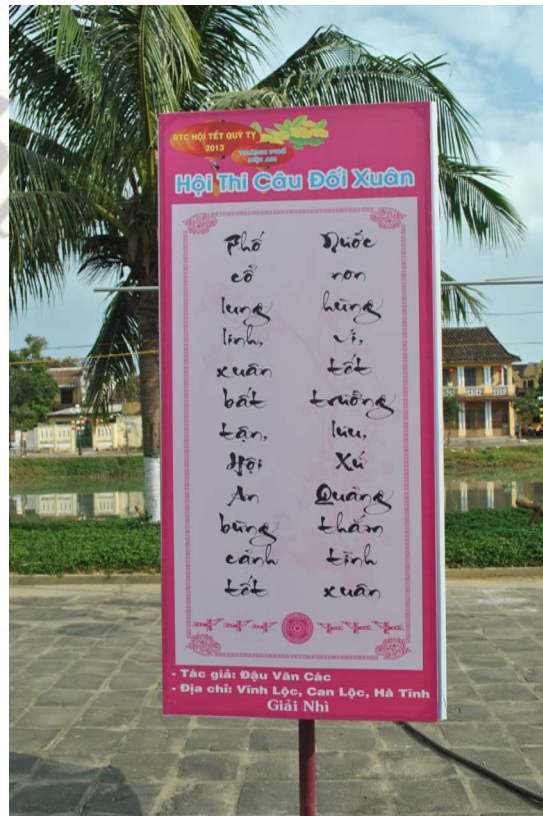 BTC HỘI TẾT QUÝ TỴ
2013
THÀNH PHỐ
HỘI AN
Hội Thi Câu Đối Xuân
Phố
cổ
lung
linh,
xuân
bất
tận,
Hội
An
bừng
cảnh
tết
Nước
non
hùng
vĩ,
tết
trường
lưu,
Xứ
Quảng
thắm
tình
xuân
- Tác giả: Đậu Văn Các
- Địa chỉ: Vĩnh Lộc, Can Lộc, Hà Tĩnh
Giải Nhì